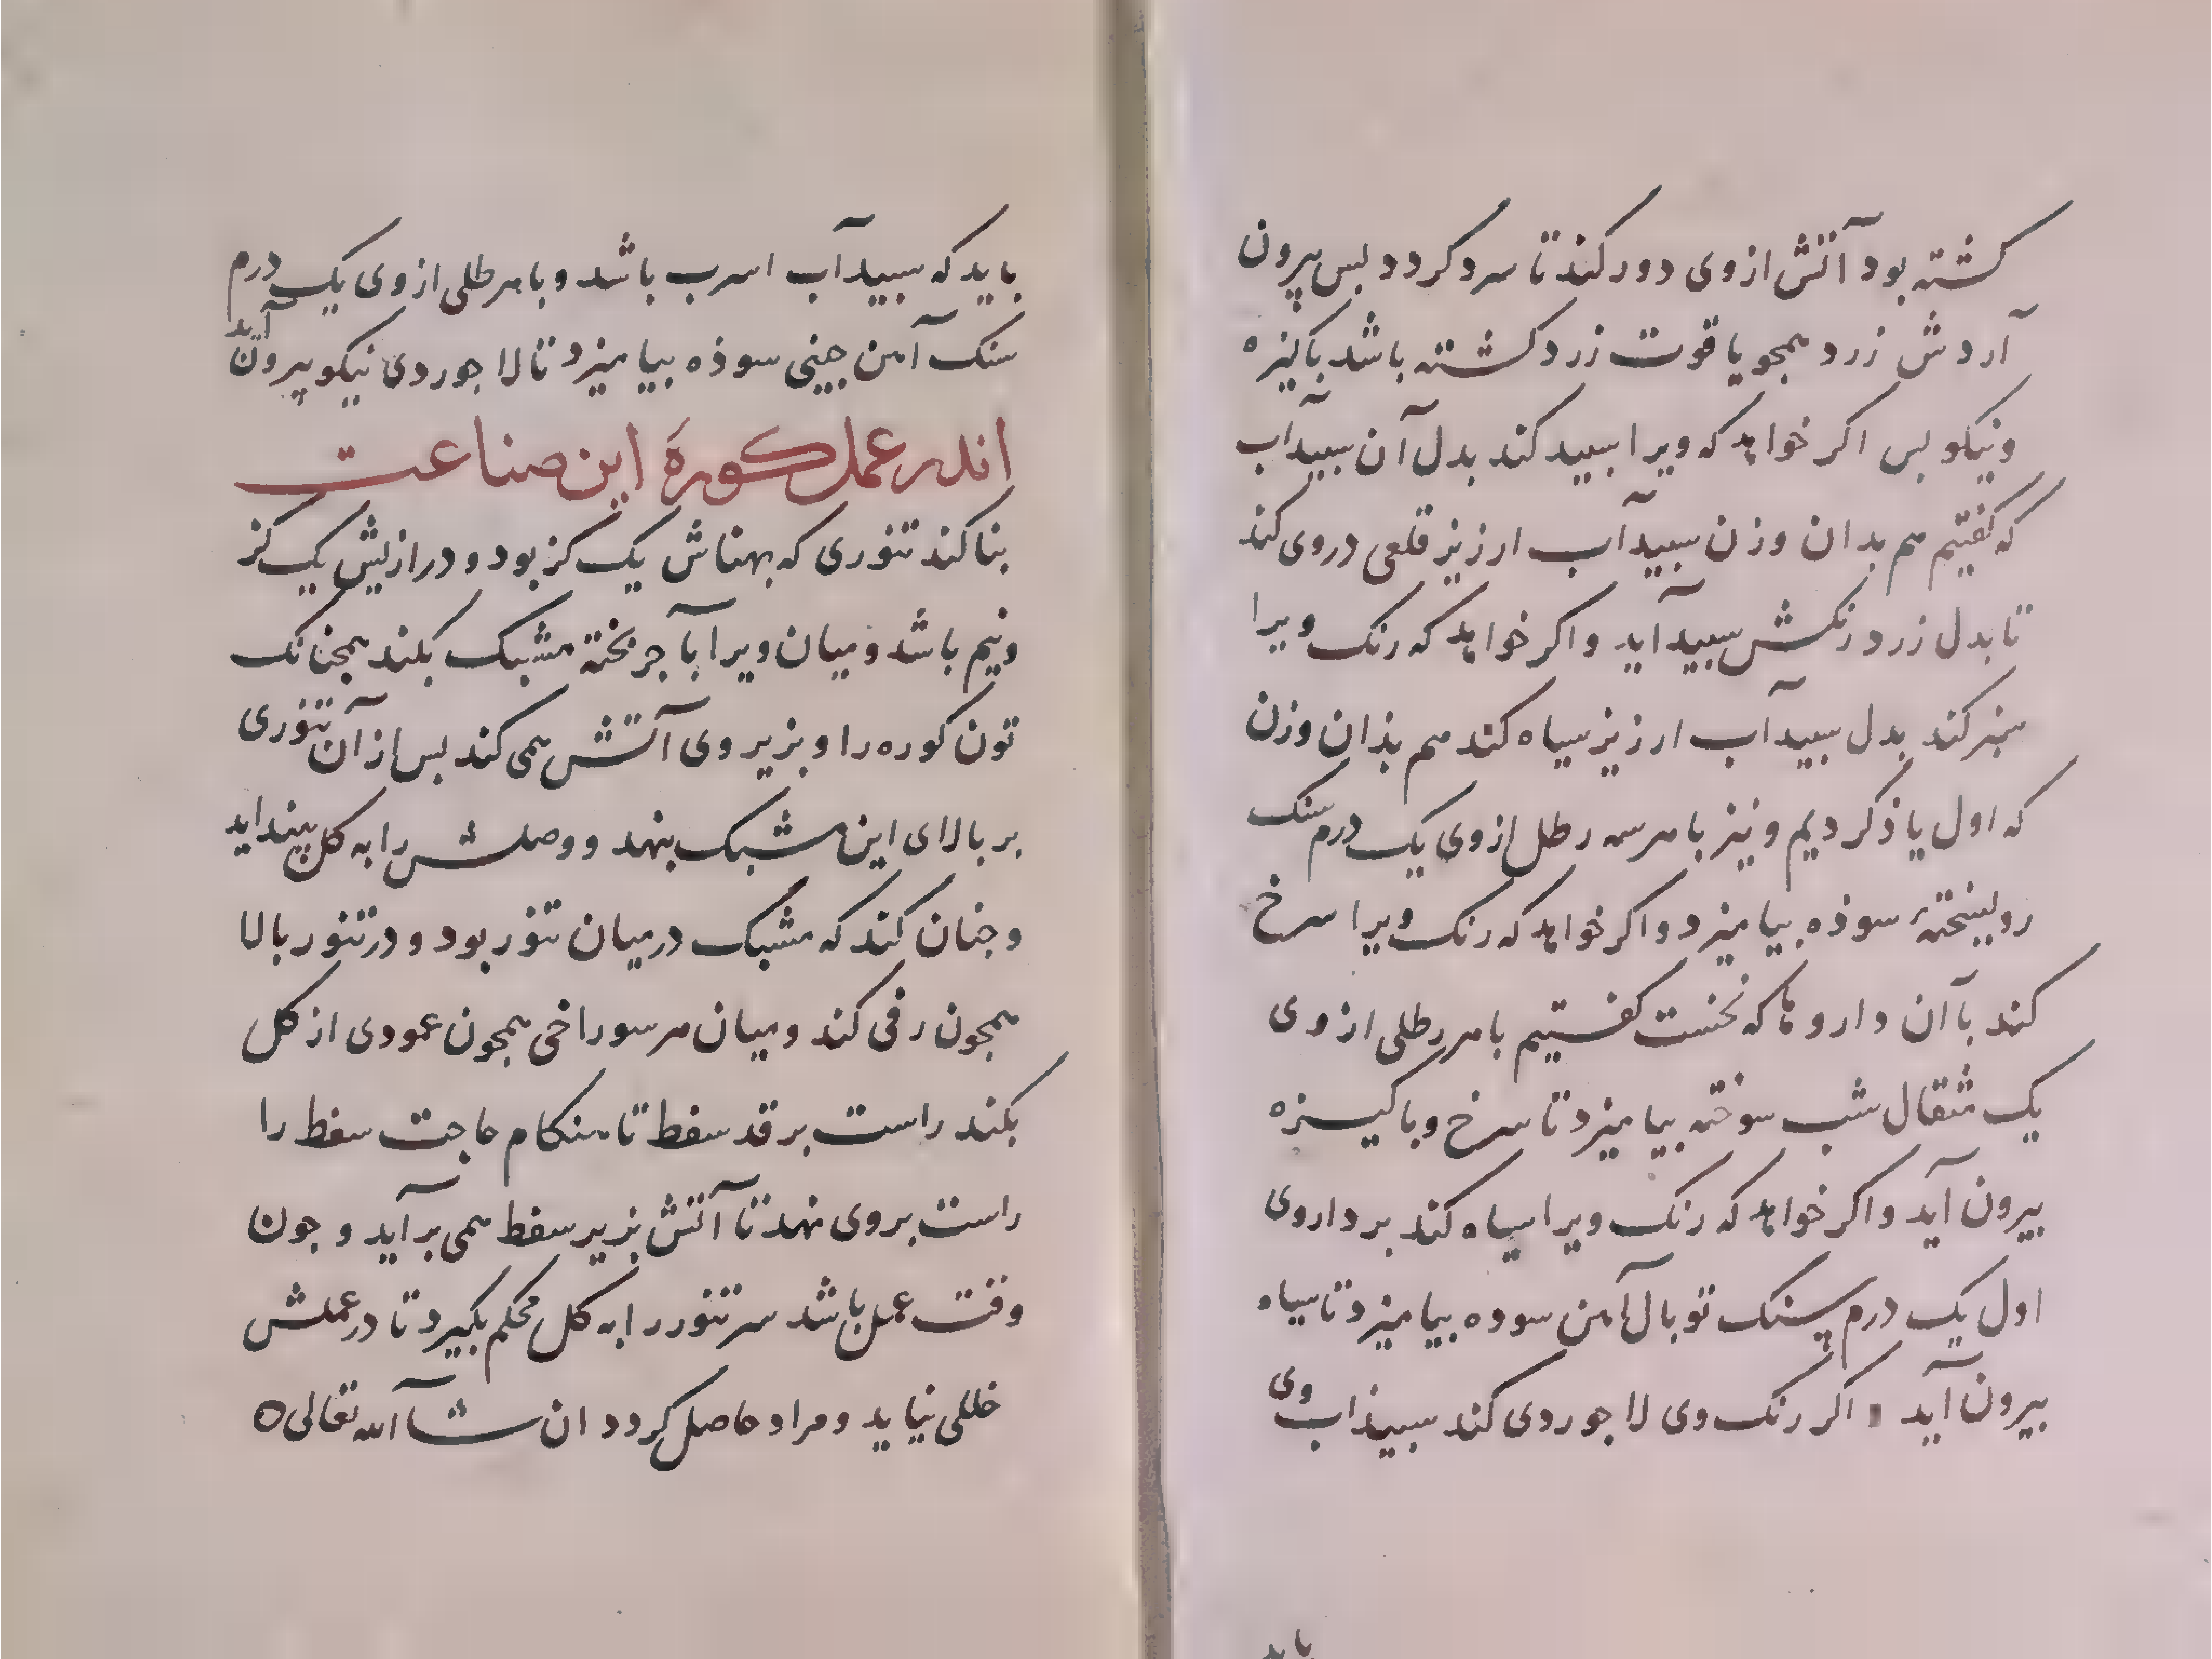 کشته بود آتش از وی دور کند تا سرد کردد بس بیرون
آردش زرد همجو یاقوت زرد کشته باشد باکیزه
و نیکو بس اکر خواهد که ویرا سبید کند بدل آن سبیدآب
که کفتیم هم بدان وزن سبیدآب ارزیز قلعی در وی کند
تا بدل زرد رنکش سبید آید و اکر خواهد که رنک ویرا
سبز کند بدل سبیدآب ارزیز سیاه کند هم بذان وزن
که اول یاذ کردیم و نیز با هر سه رطل از وی یک درم سنک
روی سوذه بیامیزد و اکر خواهد که رنک ویرا سرخ
کند با آن داروها که نخست کفتیم با هر رطلی از وی
یک مثقال شب سوخته بیامیزد تا سرخ و باکیزه
بیرون آید و اکر خواهد که رنک ویرا سیاه کند بر داروی
اول یک درم سنک توبال آهن سوده بیامیزد تا سیاه
بیرون آید و اکر رنک وی لاجوردی کند سبیذاب وی
باید
باید که سبیدآب اسرب باشد و با هر طلی از وی یک درم
سنک آهن جینی سوذه بیامیزد تا لاجوردی نیکو بیرون آید
اندر عمل کورهٔ این صناعت
بنا کند تنوری که بهناش یک کز بود و درازیش یک کز
و نیم باشد و میان ویرا بآجر بخته مشبک بکند همجنانک
تون کوره را و بزیر وی آتش همی کند بس از آن تنوری
بر بالای این مشبک بنهد و وصلش را به کل بینداید
و جنان کند که مشبک در میان تنور بود و در تنور بالا
همجون رفی کند و میان هر سوراخی همجون عمودی از کل
بکند راست بر قد سفط تا هنکام حاجت سفط را
راست بر وی نهد تا آتش بزیر سفط همی بر آید و جون
وقت عمل باشد سر تنور را به کل محکم بکیرد تا در عملش
خللی نیاید و مراد حاصل کردد ان شاآ الله تعالی ه